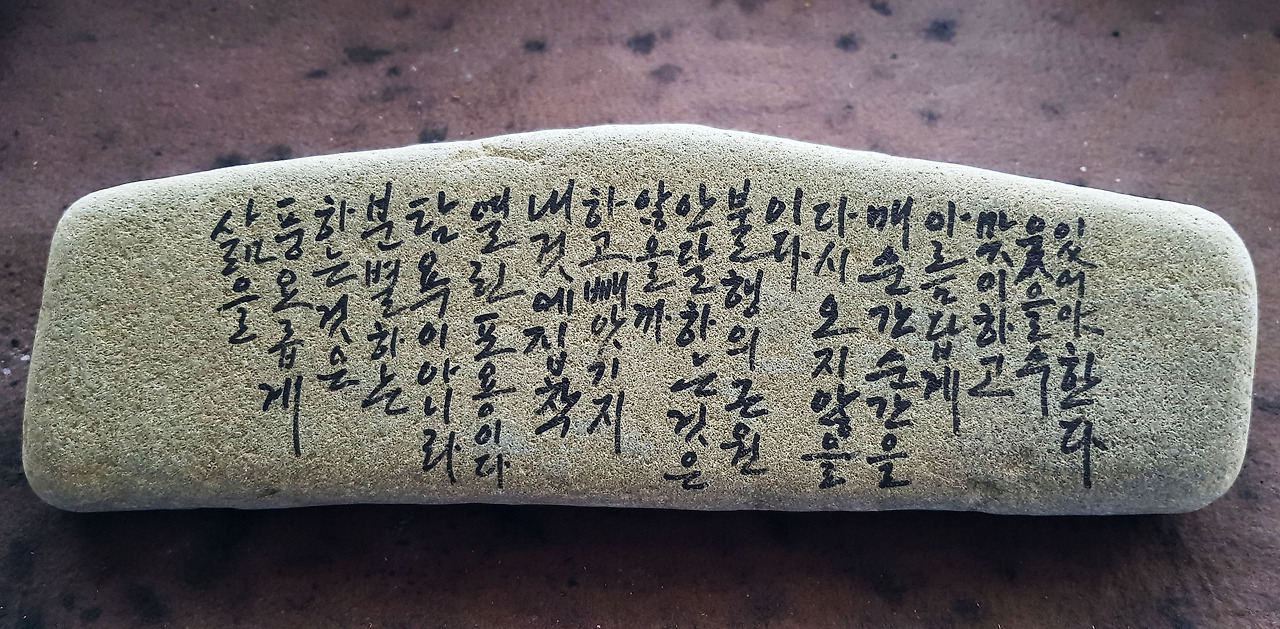 삶을
풍요롭게
하는 것은
분별하는
탐욕이 아니라
열린 포용이다
내것에 집착
하고 빼앗기지
않을까
안달하는 것은
불행의 근원
이다
다시 오지 않을
매 순간 순간을
아름답게
맞이하고
웃을 수
있어야 한다